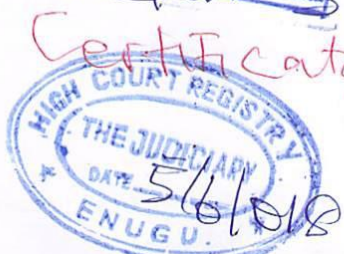 Certificat
HIGH COURT REGISTRY
THE JUDICIARY
DATE 5/6/018
ENUGU.